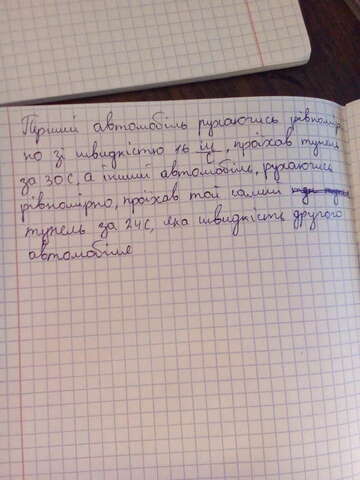 Перший автомобіль рухаючись рівномір
но зі швидкістю 16 м/с, проїхав тунель
за 30 С, а інший автомобіль, рухаючись
рівномірно, проїхав той самий
тунель за 24С, яка швидкість другого
автомобіля